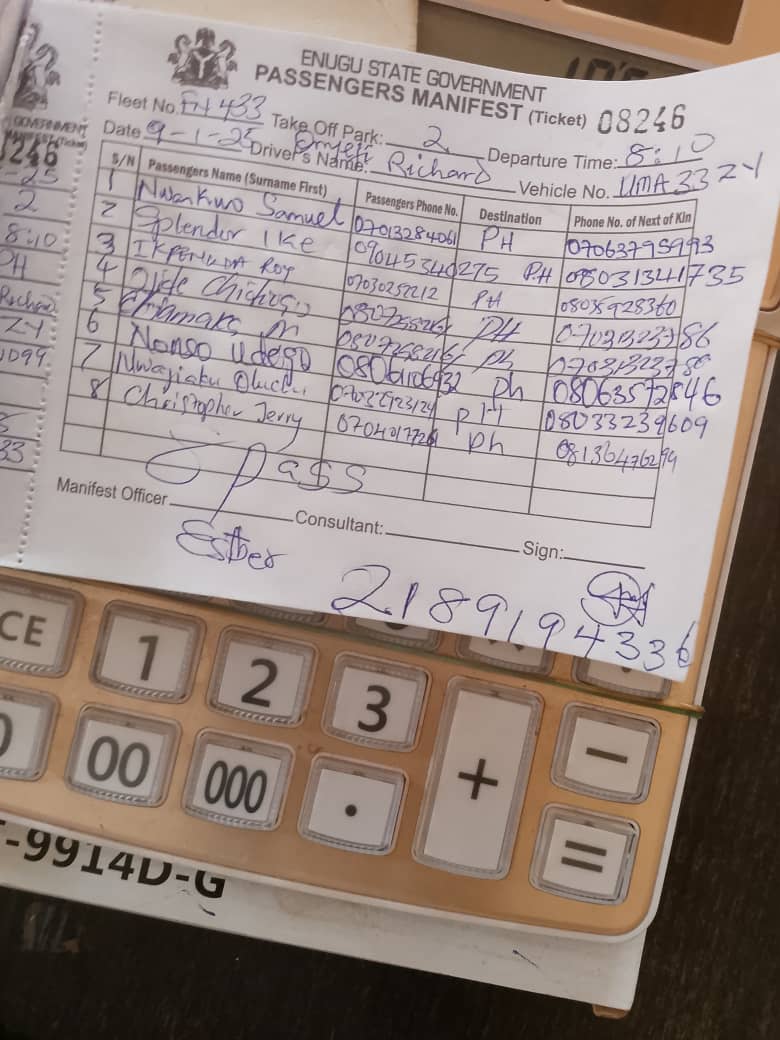 ENUGU STATE GOVERNMENT
PASSENGERS MANIFEST (Ticket) 08246
Fleet No. EN 433 Take Off Park: 2 Departure Time: 8:10
Date 9-1-25 Driver's Name: Richard Vehicle No. UMA 33 ZY
S/N Passengers Name (Surname First) Passengers Phone No. Destination Phone No. of Next of Kin
1 Nwankwo Samuel 07013284061 PH 07063795993
2 Splendor Ike 09045340275 P.H 08031341735
3 Roy 07030252212 PH 08035928360
4 PH
5 Chiamaka M Ph
6 Nonso Udego 08061106932 ph 08063572846
7 Nwajiaku Oluchi PH 08033239609
8 Christopher Jerry ph 08136476299
Pass
Manifest Officer Consultant: Sign:
Esther
2189194336
GOVERNMENT
MANIFEST (Ticket)
8246
-25
2
8:10
PH
Richard
ZY
1099
5
33
CE 1 2 3 + -
00 000 . =
-9914D-G